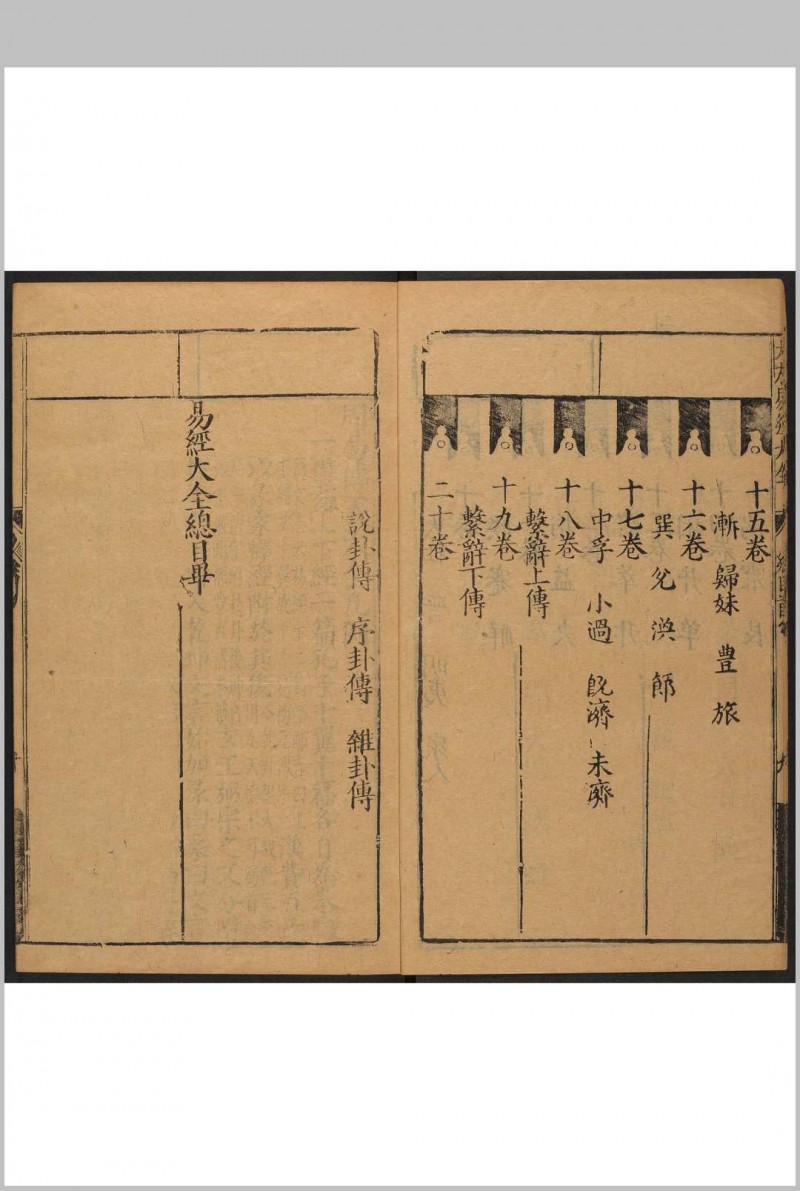 十五卷
漸 歸妹 豊 旅
十六卷
巽 兌 渙 節
十七卷
中孚 小過 既濟 未濟
十八卷
繫辭上傳
十九卷
繫辭下傳
二十卷
說卦傳 序卦傳 雜卦傳
易經大全總目畢